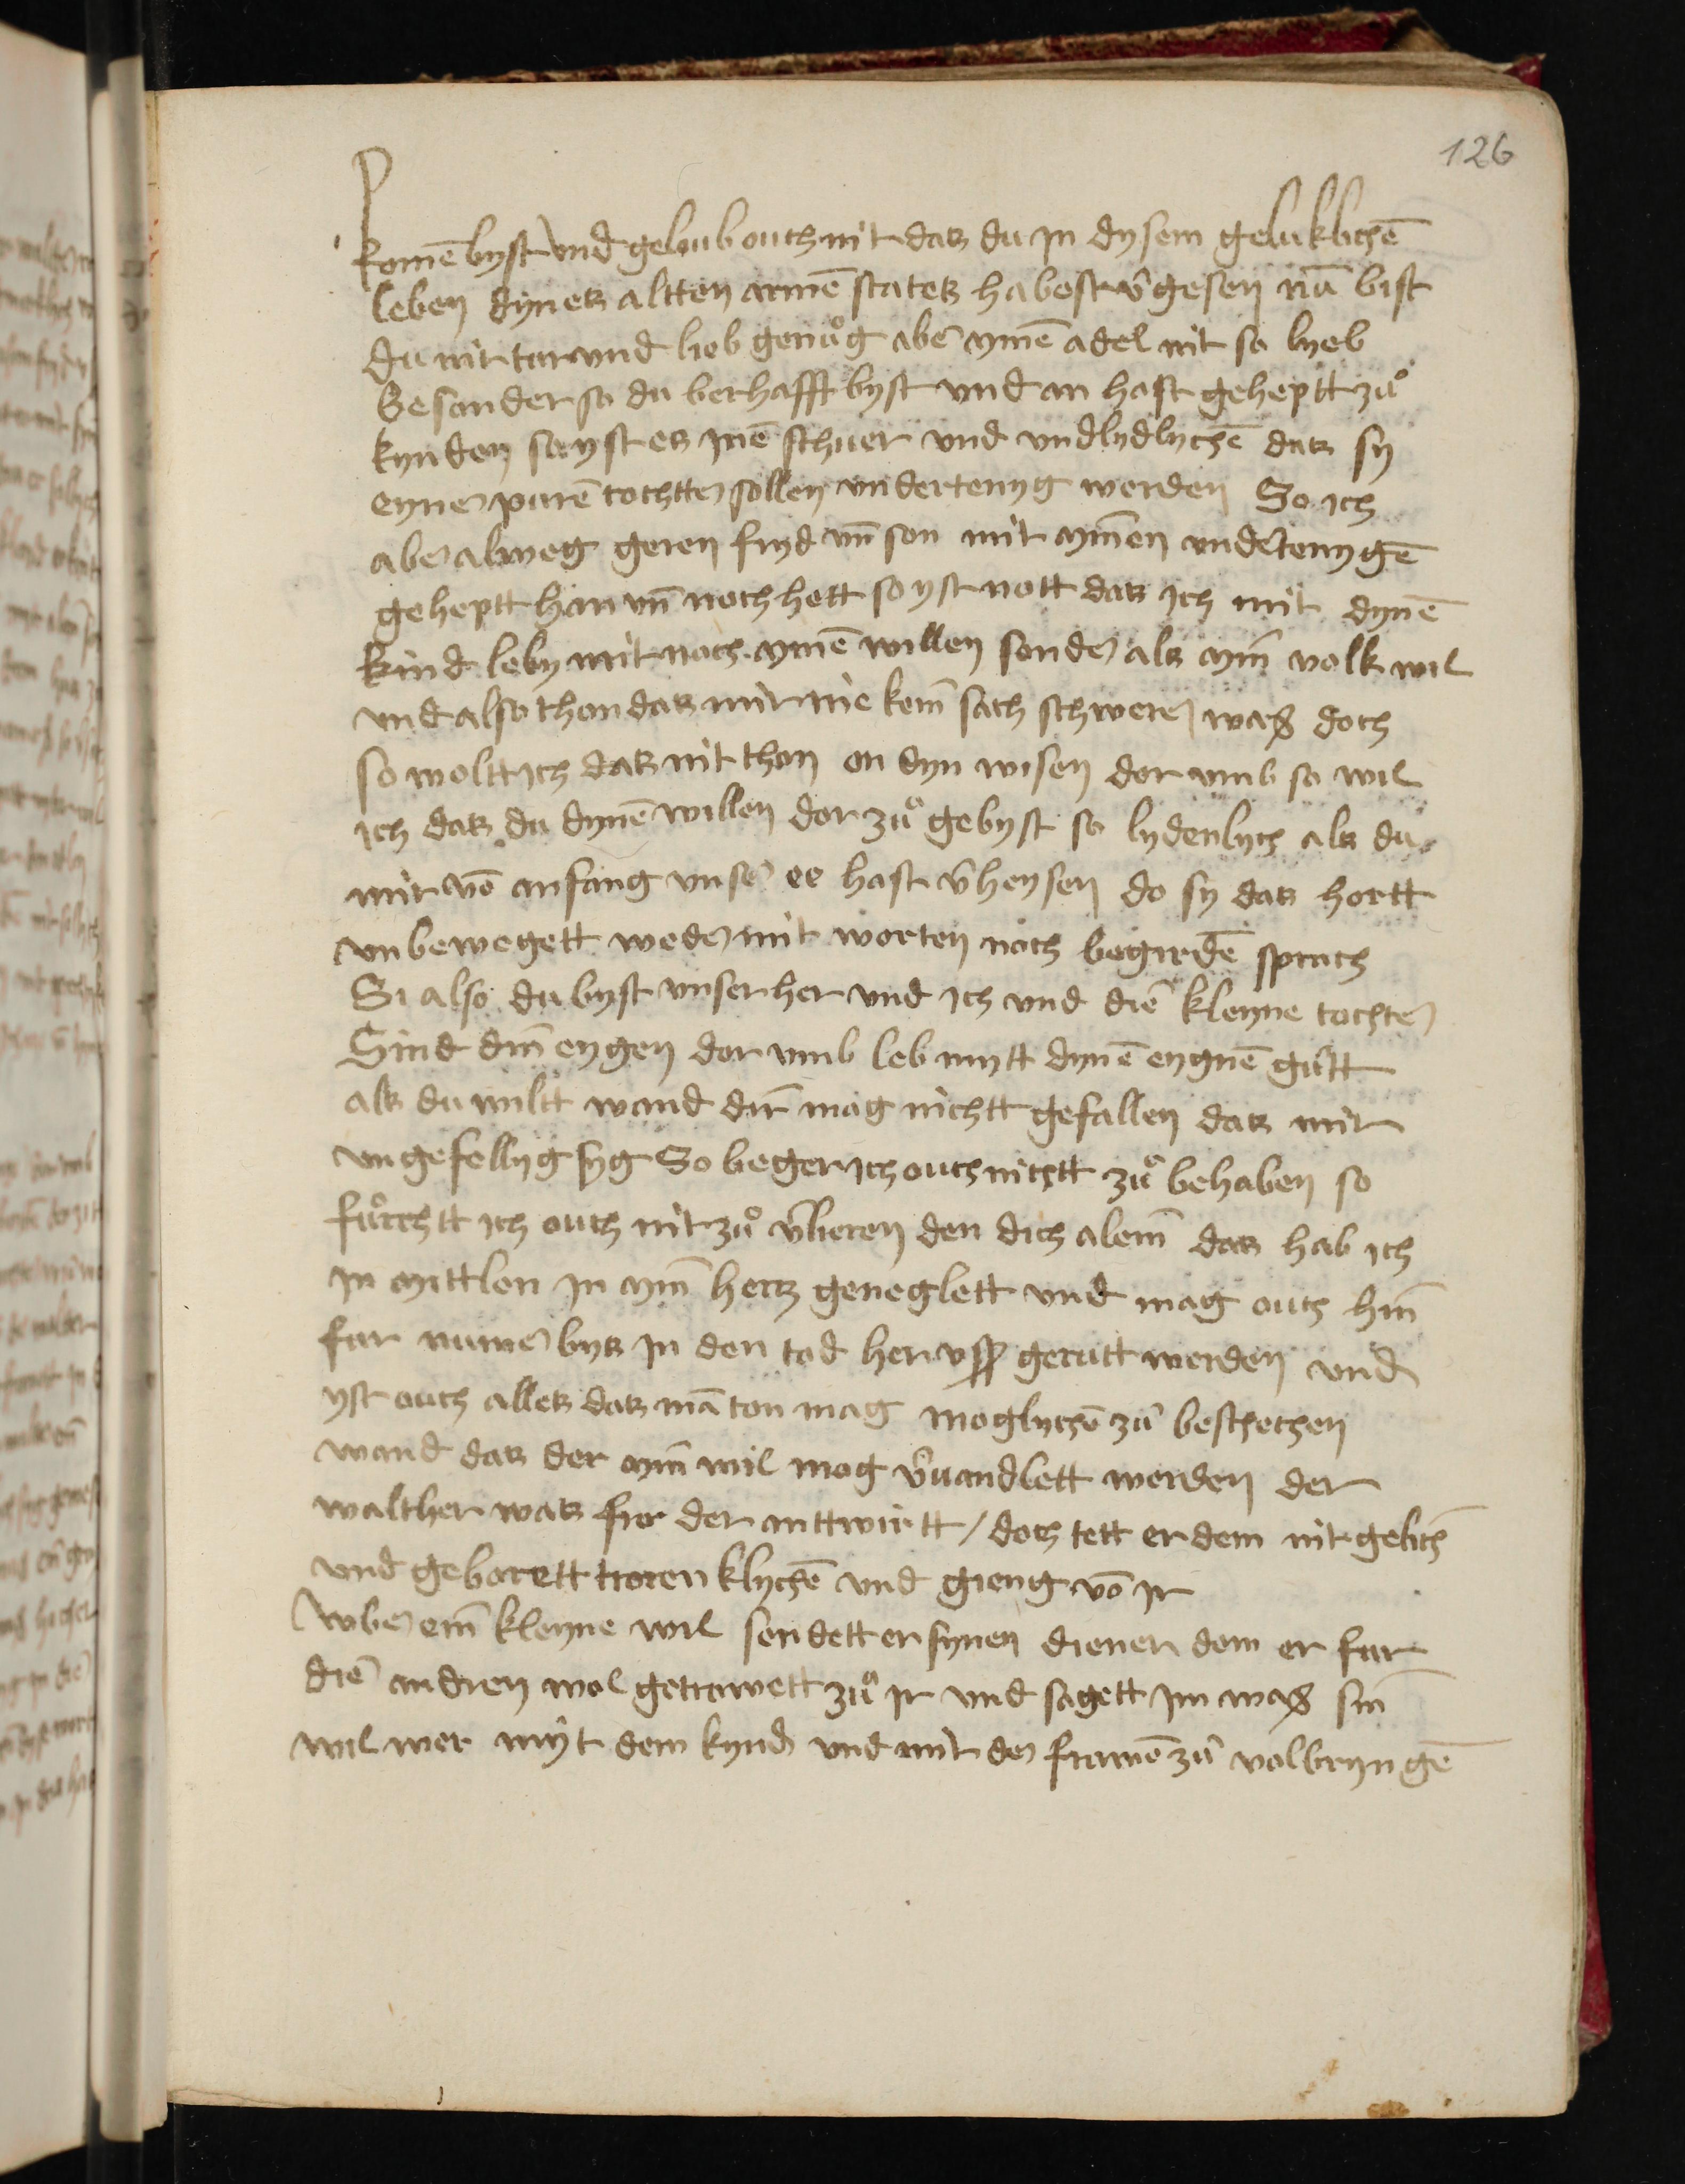 126
komē byst vnd geloub ouch nit das du jn dysem geluklichē
leben dynes altten armē states habest v̄gesen nū bist
du mir tur vnd lieb genůg aber mynē adel nit so lyeb
Besonder so du berhafft byst vnd an hast geheptt zů
kynden so yst es jnē schwer vnd vndlydlychē das sy
eyner purē tochtter sollen vndertenyg werden So ich
aber alweg geren fryd vn̄ son mit mynen vndertenygē
geheptt han vn̄ noch hett so yst nott das ich mit dynē
kind leby nit noch mynē willen sonder als mȳn volk wil
vnd also thon das mir nie kein̄ sach schwerer waß doch
so woltt ich das nit thon on dyn wisen dor vmb so wil
ich das du dynē willen dor zů gebyst so lydenlych als du
mir vō anfang vnser ee hast v̄heysen do sy das hortt
vnbewegett weder mit worten noch begirdē sprach
Si also du byst vnser her vnd ich vnd die kleyne tochter
Sind din̄ eygen dor vmb leb mytt dynē eygnē gutt
als du wiltt wand dir mag nichtt gefallen das mir
vngefellyg syg So beger ich ouch nichtt zů behaben so
fůrchtt ich ouch nit zů v̄lieren den dich alein̄ das hab ich
jn mittlen jn mȳn hertz geneglett vnd mag ouch hin̄
fur numer bys jn den tod her vß gerutt werden vnd
yst ouch alles das mā ton mag moglychē zů beschechen
wand das der mȳn wil mag v̄wandlett werden der
walther was fro der anttwurtt / doch tett er dem nit gelich
vnd geborett trorenklychē vnd gieng vō jr
vber ein̄ kleyne wil sendett er synen diener dem er fur
die andren wol getrawett zů jr vnd sagett jm waß sin̄
wil wer myt dem kynd vnd mit der frawē zů volbryngē